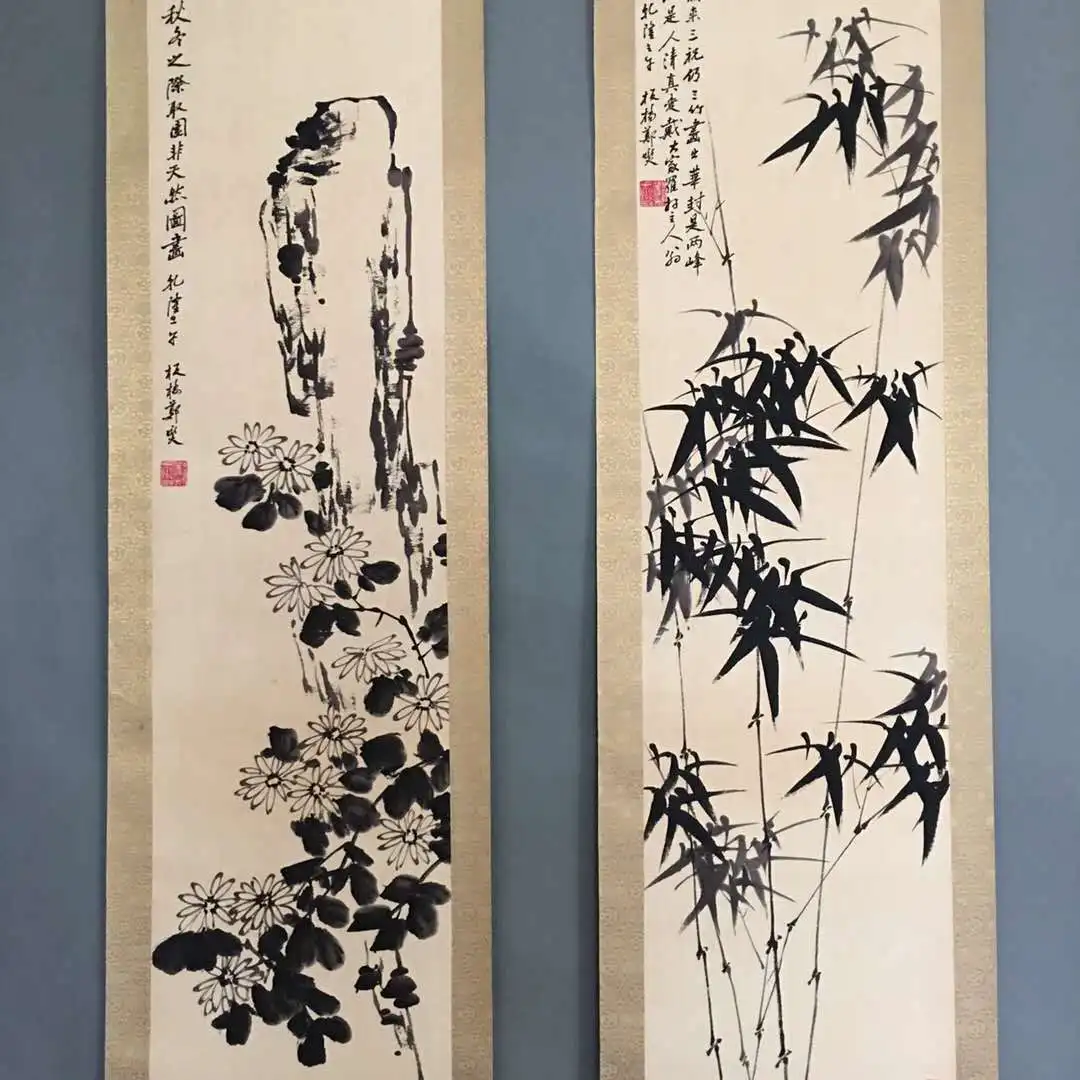 秋冬之際取圍非天然圖畫
乾隆壬午 板橋鄭燮
來三祝仍三竹畫出華封是兩峰
是人清真愛戴大家羅拜主人翁
乾隆壬午 板橋鄭燮